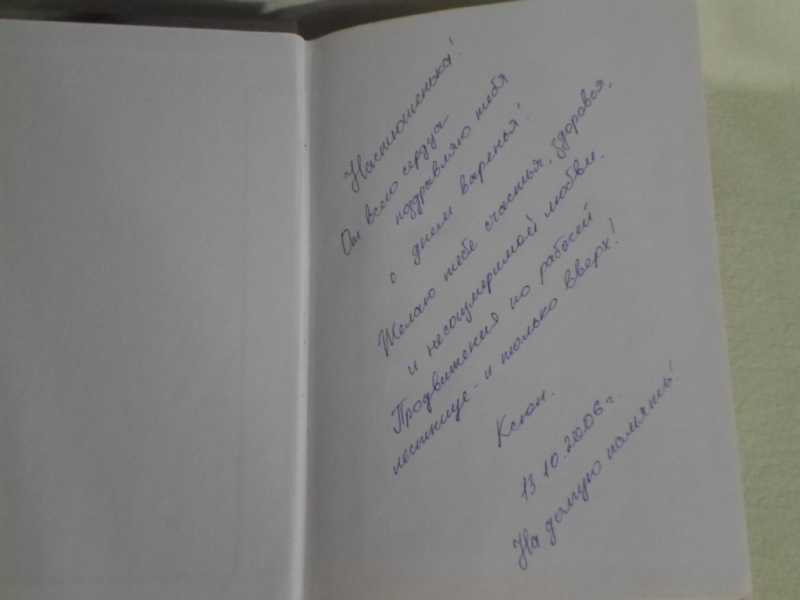 Настюшенька!
От всего сердца
поздравляю тебя
с днем варенья!
Желаю тебе счастья, здоровья,
и несоизмеримой любви.
Продвижения по рабочей
лестнице - и только вверх!
Ксюн.
13.10.2006 г.
На долгую память!